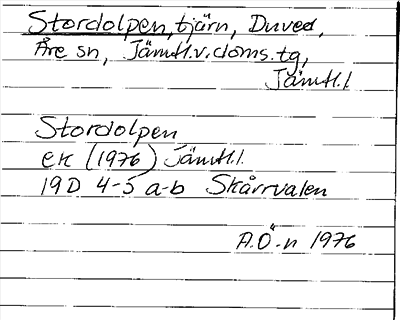 Stordolpen, tjärn, Duved,
Åre sn, Jämtl.v.doms.tg,
Jämtl.l
Stordolpen
ek (1976) Jämtl.l.
19D 4-5 a-b Skårrvalen
A.Ö-n 1976